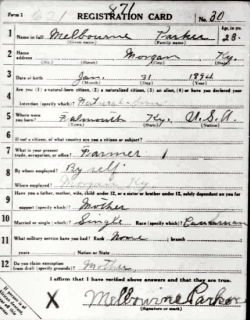 Form 1
671
REGISTRATION CARD
No. 30
1 Name in full Melbourne Parker Age, in yrs. 23
(Given name) (Family name)
2 Home address Morgan Ky.
3 Date of birth Jan. 31 1894
(Month) (Day) (Year)
4 Are you (1) a natural-born citizen, (2) a naturalized citizen, (3) an alien, (4) or have you declared your
intention (specify which)?
5 Where were you born? Falmouth Ky. U.S.A
(Town) (State) (Nation)
6 If not a citizen, of what country are you a citizen or subject?
7 What is your present trade, occupation, or office? Farmer
8 By whom employed? By self
Where employed?
9 Have you a father, mother, wife, child under 12, or a sister or brother under 12, solely dependent on you for
support (specify which)? Mother
10 Married or single (which)? Single Race (specify which)?
11 What military service have you had? Rank None ; branch
years Nation or State
12 Do you claim exemption from draft (specify grounds)? Mother
I affirm that I have verified above answers and that they are true.
X Melbourne Parker
(Signature or mark)